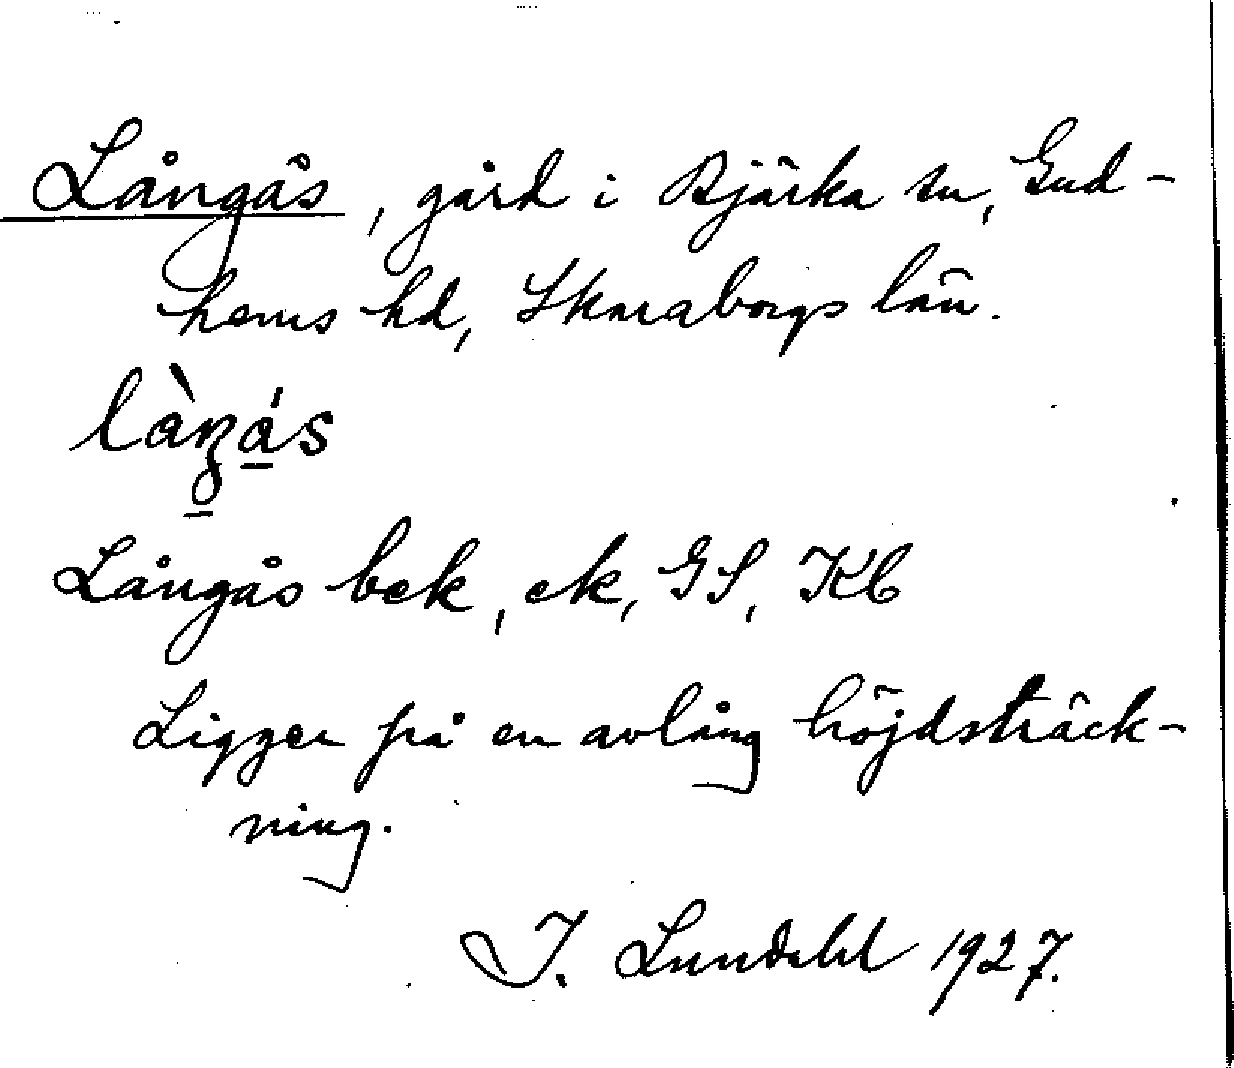 Långås, gård i Bjärka sn, Gud-
hems hd, Skaraborgs län.
Långås bek, ek, GS, Kb
Ligger på en avlång höjdsträck-
ning.
I. Lundahl 1927.